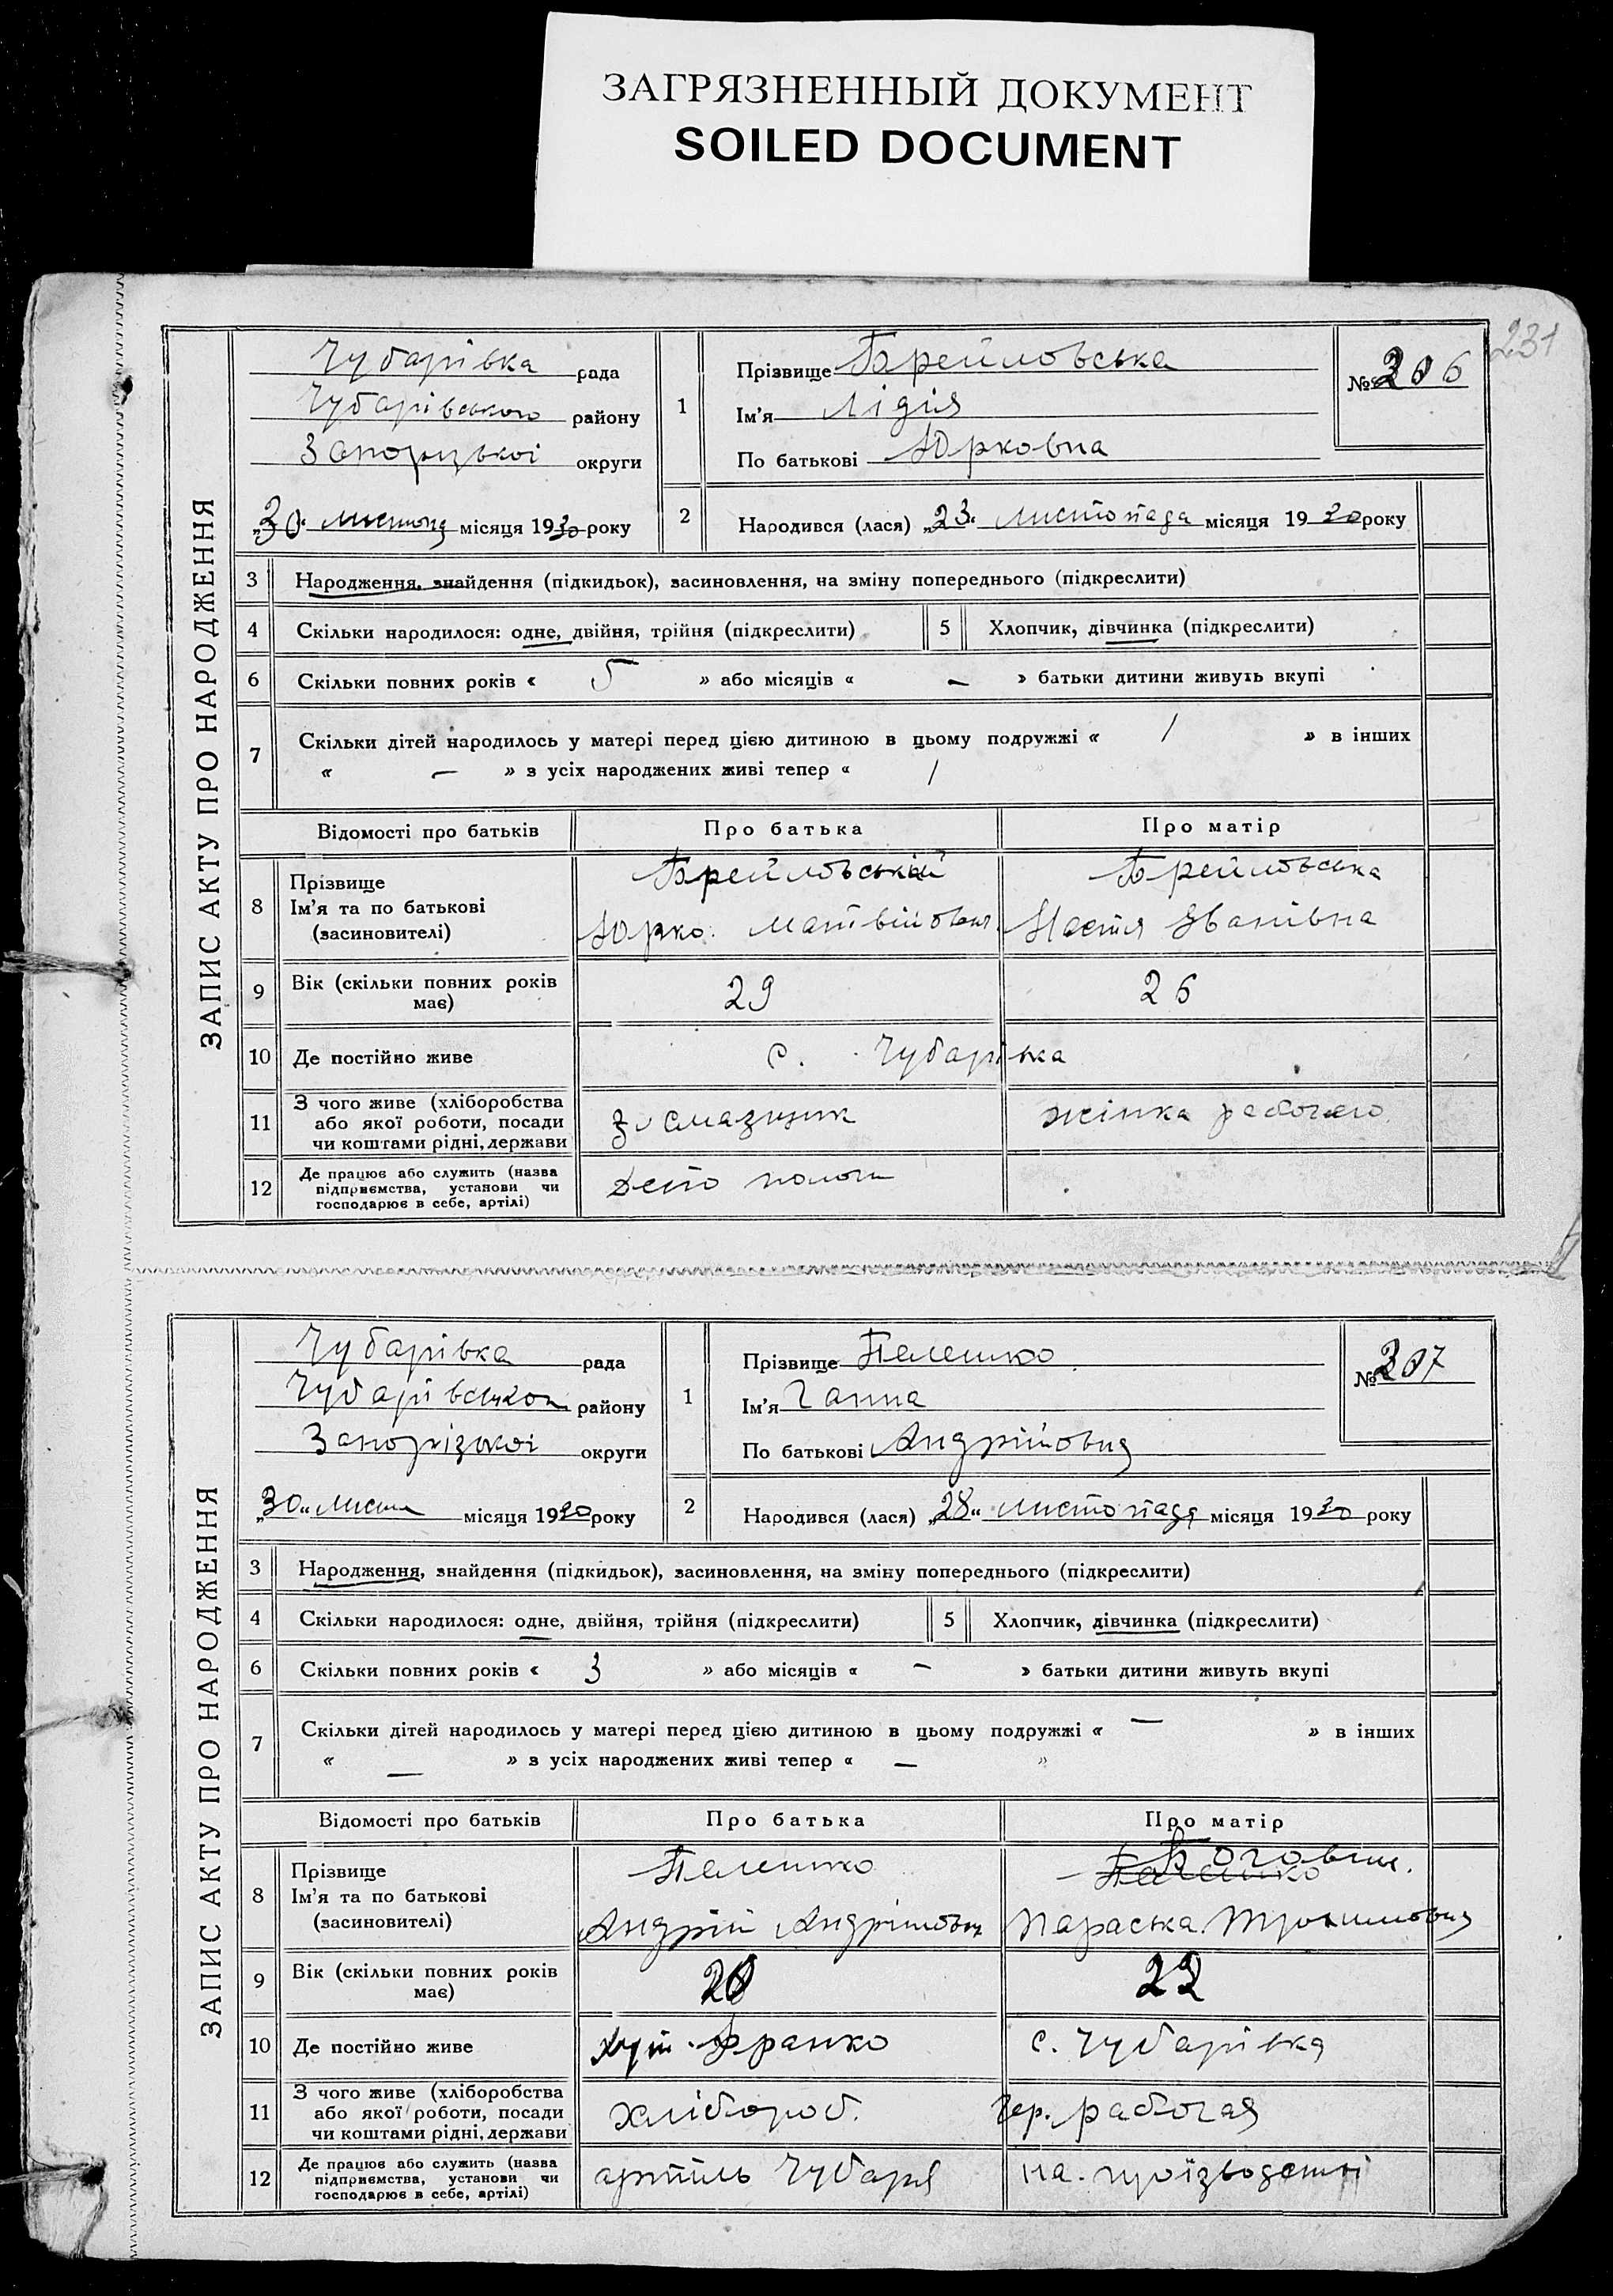 ЗАГРЯЗНЕННЫЙ ДОКУМЕНТ
SOILED DOCUMENT
231
ЗАПИС АКТУ ПРО НАРОДЖЕННЯ
Чубарівка рада
Чубарівського району
Запорізької округи
„30“ листопад місяця 1930 року
1
Прізвище Брейловська
Ім'я Лідія
По батькові Юрковна
№ 206
2
Народився (лася) „23“ листопада місяця 1930 року
3 Народження, знайдення (підкидьок), засиновлення, на зміну попереднього (підкреслити)
4 Скільки народилося: одне, двійня, трійня (підкреслити) 5 Хлопчик, дівчинка (підкреслити)
6 Скільки повних років « 5 » або місяців « — » батьки дитини живуть вкупі
7 Скільки дітей народилось у матері перед цією дитиною в цьому подружжі « 1 » в інших
« — » з усіх народжених живі тепер « 1 »
Відомості про батьків Про батька Про матір
8 Прізвище
Ім'я та по батькові
(засиновителі)
Брейловський
Юрко Матвійович
Брейловська
Настя Іванівна
9 Вік (скільки повних років має) 29 26
10 Де постійно живе с. Чубарівка
11 З чого живе (хліборобства
або якої роботи, посади
чи коштами рідні, держави
смазчик жінка рабочего
12 Де працює або служить (назва
підприємства, установи чи
господарює в себе, артілі)
Депо пологи
ЗАПИС АКТУ ПРО НАРОДЖЕННЯ
Чубарівка рада
Чубарівського району
Запорізької округи
„30“ лист місяця 1930 року
1
Прізвище Пелешко
Ім'я Ганна
По батькові Андрійовна
№ 207
2
Народився (лася) „28“ листопада місяця 1930 року
3 Народження, знайдення (підкидьок), засиновлення, на зміну попереднього (підкреслити)
4 Скільки народилося: одне, двійня, трійня (підкреслити) 5 Хлопчик, дівчинка (підкреслити)
6 Скільки повних років « 3 » або місяців « — » батьки дитини живуть вкупі
7 Скільки дітей народилось у матері перед цією дитиною в цьому подружжі « — » в інших
« — » з усіх народжених живі тепер « — »
Відомості про батьків Про батька Про матір
8 Прізвище
Ім'я та по батькові
(засиновителі)
Пелешко
Андрій Андрійович
Пелешко
Параска
9 Вік (скільки повних років має) 22
10 Де постійно живе хут. Франко с. Чубарівка
11 З чого живе (хліборобства
або якої роботи, посади
чи коштами рідні, держави
хлібороб. чер. рабочая
12 Де працює або служить (назва
підприємства, установи чи
господарює в себе, артілі)
артіль Чубаря на производстві